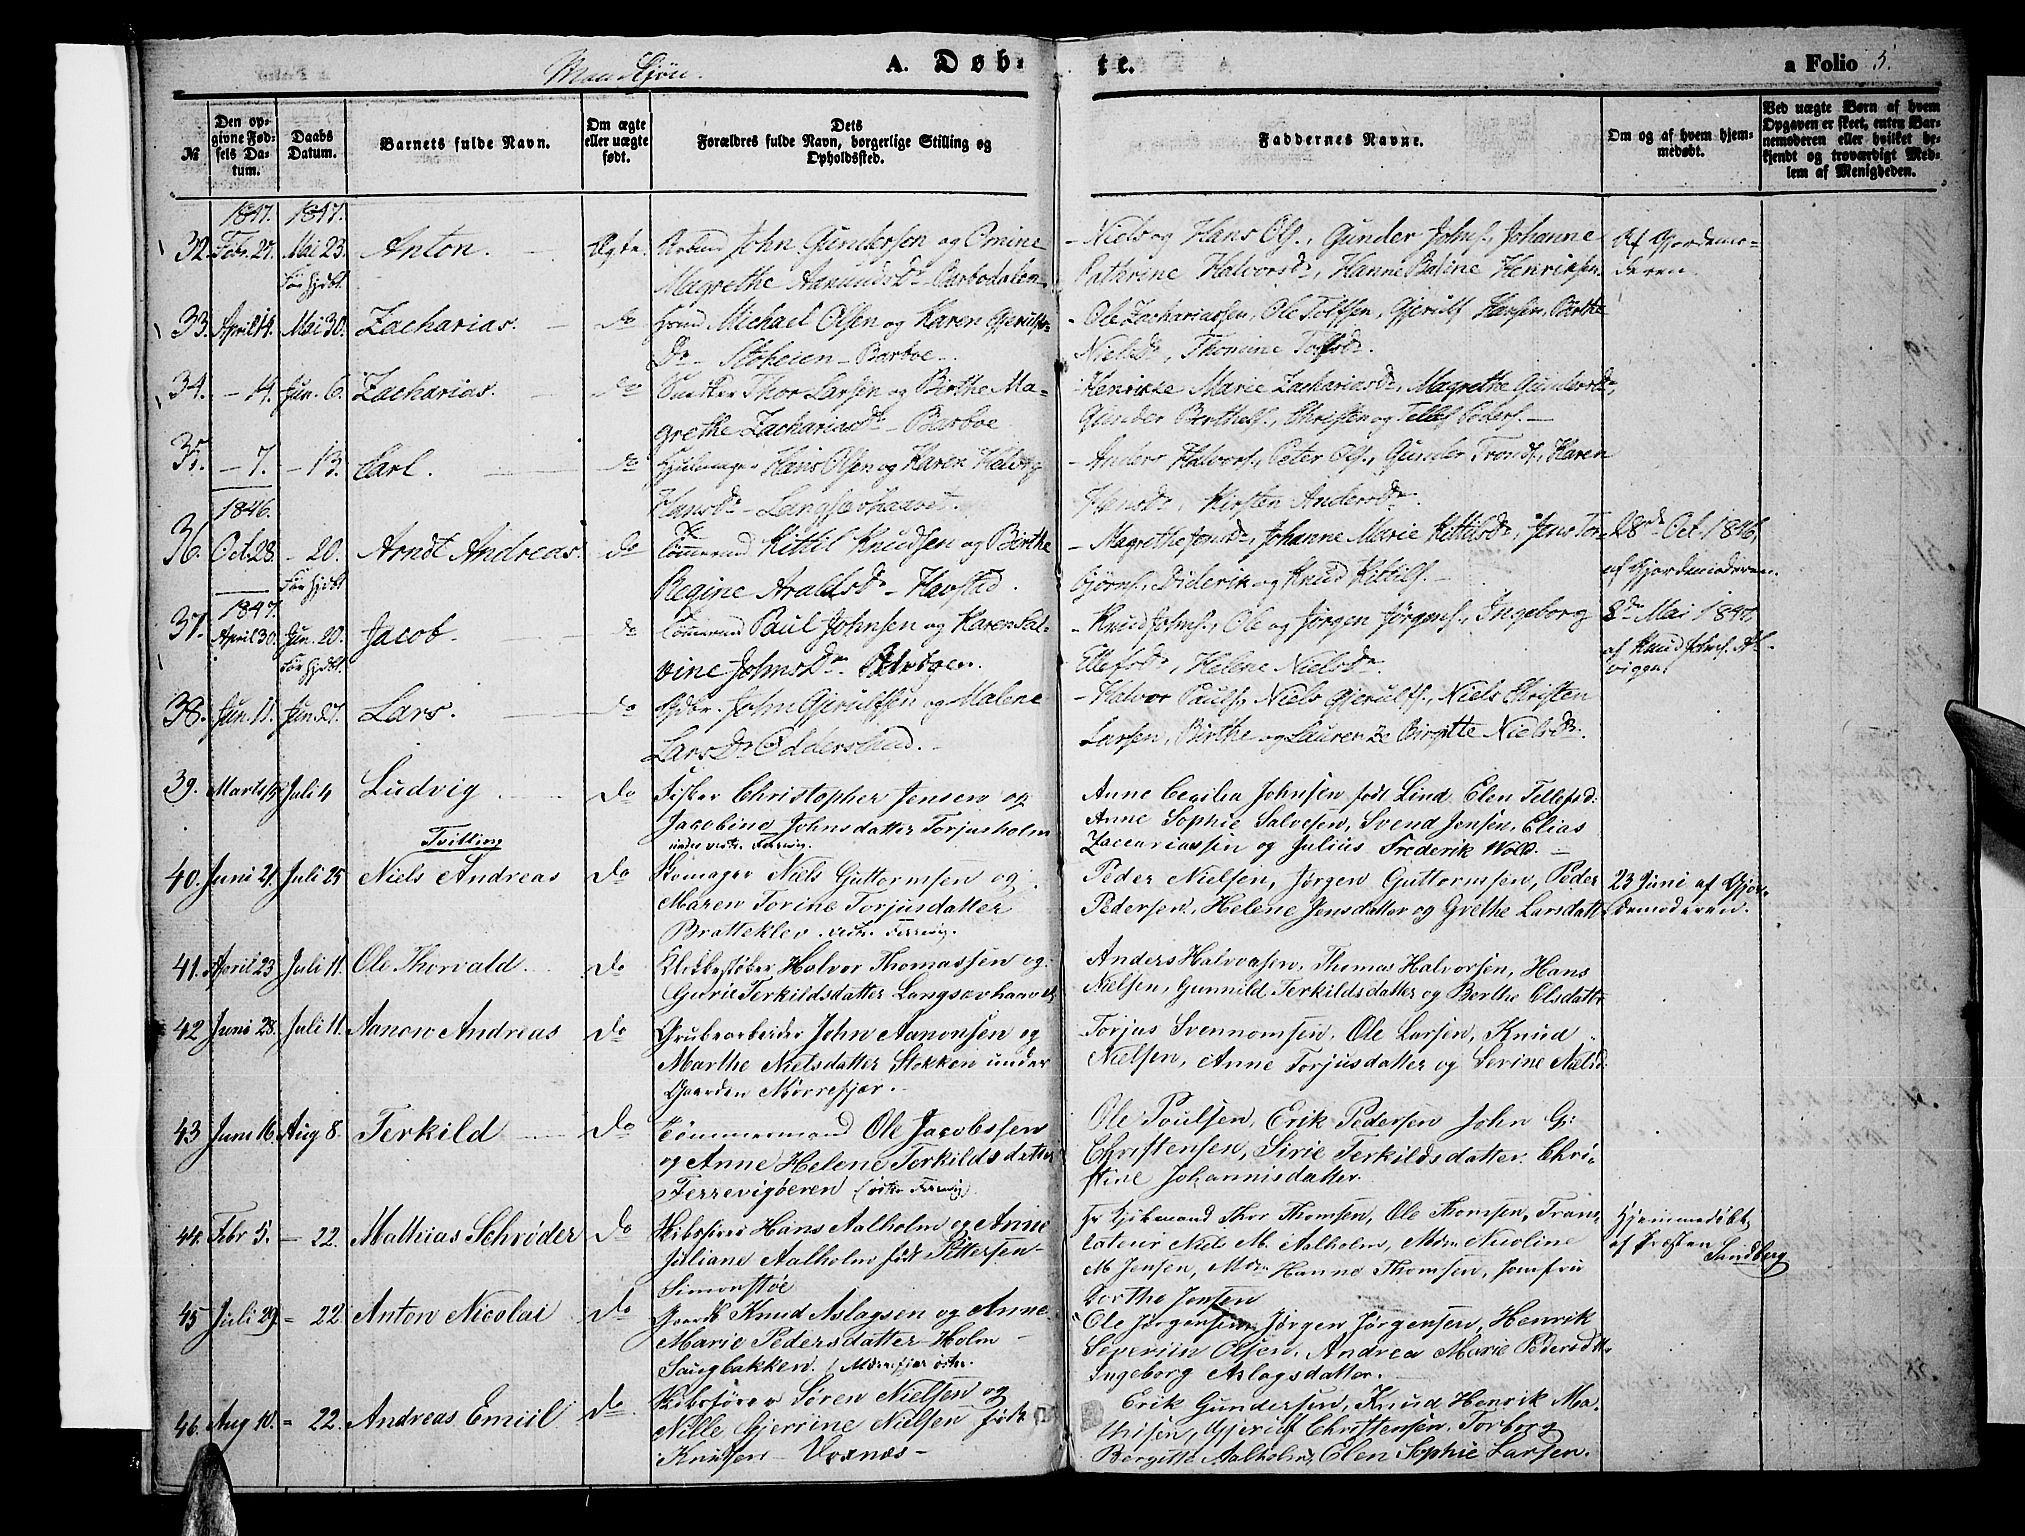 Mandkjøn.
A. Døbte.
a Folio 5.
№
Den opgivne Fødsels Datum.
Daabs Datum.
Barnets fulde Navn.
Om ægte eller uægte født.
Dets Forældres fulde Navn, borgerlige Stilling og Opholdssted.
Faddernes Navne.
Om og af hvem hjemmedøbt.
Ved uægte Børn af hvem Opgaven er skeet, enten Barnemoderen eller hvilket bekjendt og troværdigt Medlem af Menigheden.
1847. 1847.
32. Febr. 27. Mai 23. Anton. Ægte. John Gundersen og Omine
Før hjdbt Magrethe Aamundsdr
Niels og Hans Ols., Gunder Johns., Johanne
Cathrine Halvorsdr, Hanne Henriksen.
Af Gjordemo-
deren.
33. April 14. Mai 30. Zacharias. do Michael Olsen og Karen Gjerulfs-
Dr Stoheien - Barboe.
Ole Zachariassen, Ole Tolfsen, Gjerulf Hansen, Birthe
Nielsdr, Thomine
34. - 14. Jun. 6. Zacharias. do Thor Larsen og Birthe Ma-
grethe Zachariasdr - Barboe
Henrikke Marie Zachariasdr, Magrethe Gundersdr,
Gunder Berthels., Christen og Tellef Peders.
35. - 7. - 13. Carl. do Hjulmager Hans Olsen og Karen
Hansdr - Langsævhauvet
Anders Halvors., Peter Ols., Gunder Tronds., Karen
Hansdr, Kirsten Andersdr.
1846.
36. Oct. 28. - 20. Arndt Andreas. do Tømmermd Kittil Knudsen og Birthe
Før hjdbt Regine Araldsdr - Havstad.
Magrethe Jonsdr, Johanne Marie Kittilsdr, Jens Tor-
bjørns., Diderik og Knud Kittils.
28de Oct. 1846,
af Gjordemoderen.
1847.
37. April 30. Jun. 20. Jacob. do Tømmermd Paul Johnsen og Karen Sal-
Før hjdbt vine Johnsdr
Knud Johns., Ole og Jørgen Jørgens., Ingeborg
Ellefsdr, Helene Nielsdr.
Mai 1847
af Knud Johns.
38. Jun. 11. Jun. 27. Lars. do John Gjerulfsen og Malene
Larsdr
Halvor Pauls., Niels Gjerulfs., Niels Christen
Larsen, Birthe og Laurenze Birgitte Nielsdr.
39. Marts Juli 4 Ludvig do Fisker Christopher Jensen og
Jacobine Johnsdatter Torjusholm
under vestr. Ferrevig.
Anne Cecilia Johnsen født Lind Elen Tellefsd:
Anne Sophie Salvesen, Svend Jensen, Elias
Zaccariassen og Julius Frederik Wold.
Tvilling
40. Juni 21. Juli 25 Niels Andreas do Skomager Niels Guttormsen og
Maren Torine Torjusdatter
Bratteklev vestr. Ferrevig.
Peder Nielsen, Jørgen Guttormsen, Peder
Pedersen, Helene Jensdatter og Grethe Larsdatt
23 Juni af Gjor-
demoderen.
41. April 23 Juli 11. Ole Thorvald do Klokkestøber Halvor Thomassen og
Gurie Terkildsdatter Langsævhauvet
Anders Halvorsen, Thomas Halvorsen, Hans
Nielsen, Gunnild Terkildsdatter og Berthe Olsdatter
42 Juni 28. Juli 11. Aanon Andreas do Grubearbeider John Aanonsen og
Marthe Nielsdatter Stokken under
Gaarden Nørrefjør.
Torjus Svennomsen, Ole Larsen, Knud
Nielsen, Anne Torjusdatter og Serine Nielsd:
43 Juni 16. Aug 8. Terkild do Tømmermand Ole Jacobssen
og Anne Helene Terkildsdatter
Ferrevigbøeren (østre Ferrevig)
Ole Poulsen, Erik Pedersen John G:
Christensen, Sirie Terkildsdatter. Chri-
stine Johannisdatter.
44. Febr 5. - 22. Mathias Schrøder do Skibsfører Hans Aalholm og Anne
Juliane Aalholm født Pettersen
Simonstøe
Thor Thomsen, Ole Thomsen, Trans-
lateur Niels M. Aalholm, Mdm Nicoline
M Jensen, Mdm Hanne Thomsen, Jomfru
Dorthe Jensen
Hjemmedøbt
af Præsten Sundberg
45 Juli 29. - 22. Anton Nicolai do Gaardb Knud Aslagsen og Anne
Marie Pedersdatter Holm
Saugbakken
Ole Jørgensen, Jørgen Jørgensen, Henrik
Severiin Olsen, Andrea Marie Pedersdatt
Ingeborg Aslagsdatter.
46. Aug 10. - 22. Andreas Emiil do Skibsfører Søren Nielsen og
Nille Gjerrine Nielsen født
Knudsen - Voxnæs
Erik Gundersen, Knud Henrik Ma-
thisen, Gjerulf Christensen, Torborg
Bergitte Aalholm, Elen Sophie Larsen.